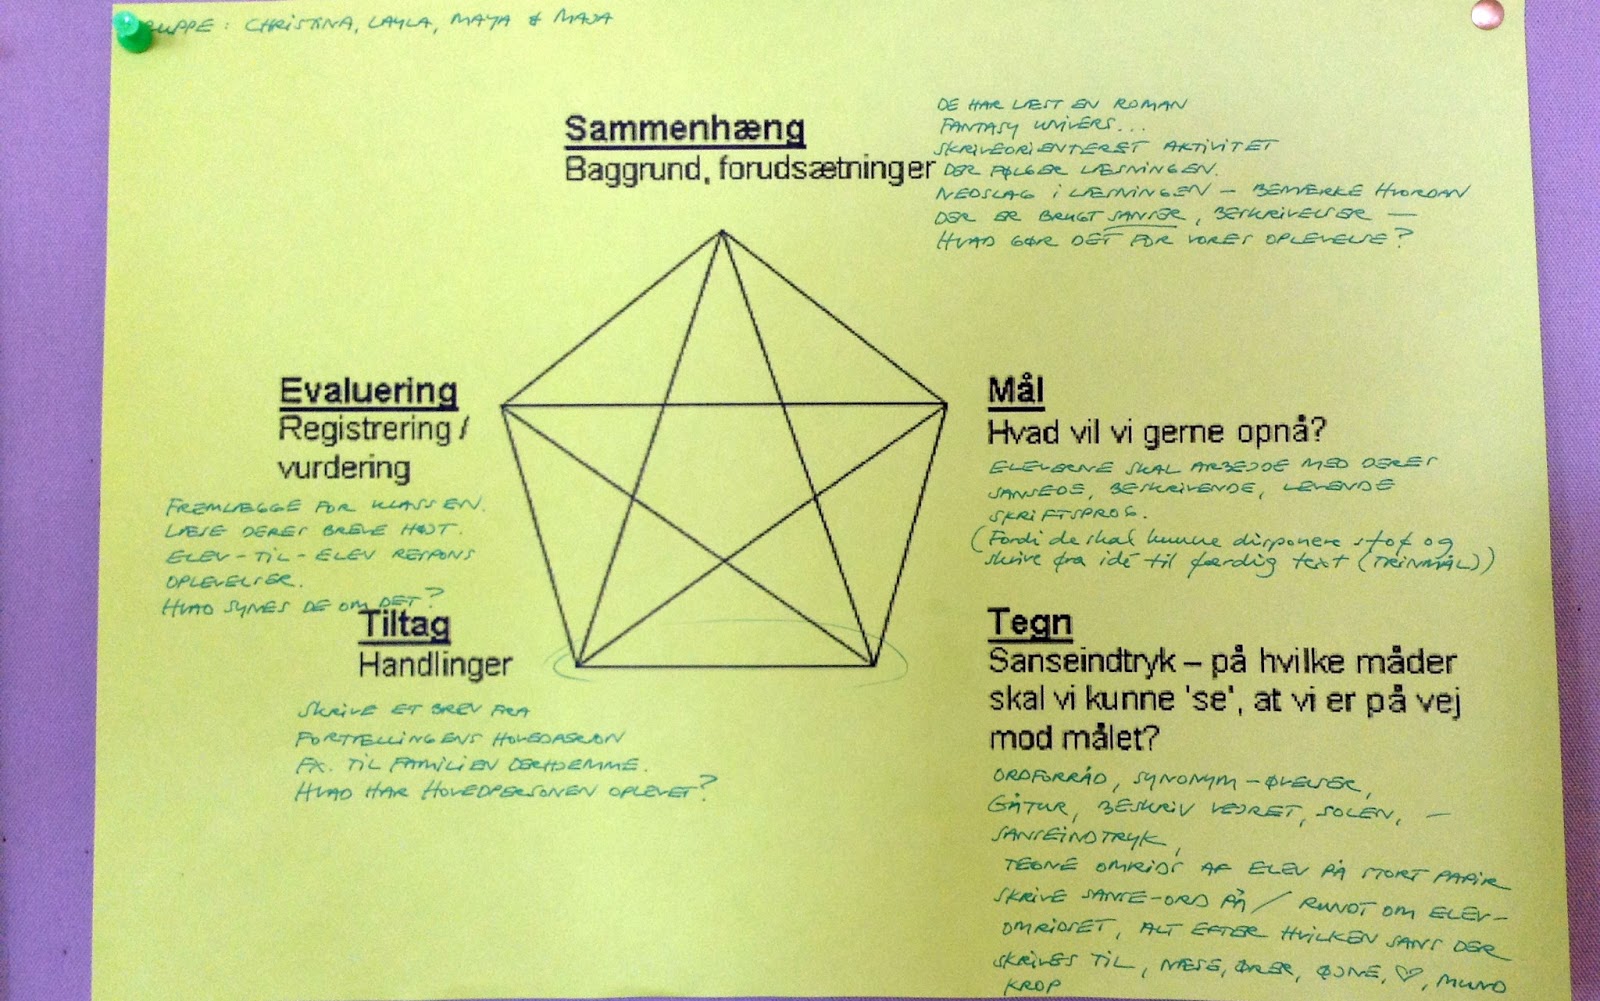 GRUPPE: CHRISTINA, LAYLA, MAYA & MAJA
Sammenhæng
Baggrund, forudsætninger
DE HAR LÆST EN ROMAN
FANTASY UNIVERS...
SKRIVEORIENTERET AKTIVITET
DER FØLGER LÆSNINGEN.
NEDSLAG I LÆSNINGEN – BEMÆRKE HVORDAN
DER ER BRUGT SANSER, BESKRIVELSER —
HVAD GØR DET FOR VORES OPLEVELSE?
Evaluering
Registrering /
vurdering
FREMLÆGGE FOR KLASSEN.
LÆSE DERES BREVE HØJT.
ELEV-TIL-ELEV RESPONS
OPLEVELSER.
HVAD SYNES DE OM DET?
Mål
Hvad vil vi gerne opnå?
ELEVERNE SKAL ARBEJDE MED DERES
SANSEDE, BESKRIVENDE, LEVENDE
SKRIFTSPROG.
(Fordi de skal kunne disponere stof og
skrive fra idé til færdig text (TRINMÅL))
Tiltag
Handlinger
SKRIVE ET BREV FRA
FORTÆLLINGENS HOVEDPERSON
FX. TIL FAMILIEN DERHJEMME.
HVAD HAR HOVEDPERSONEN OPLEVET?
Tegn
Sanseindtryk – på hvilke måder
skal vi kunne 'se', at vi er på vej
mod målet?
ORDFORRÅD, SYNONYM-ØVELSER,
GÅTUR, BESKRIV VEJRET, SOLEN, —
SANSEINDTRYK,
TEGNE OMRIDS AF ELEV PÅ STORT PAPIR
SKRIVE SANSE-ORD PÅ / RUNDT OM ELEV-
OMRIDSET, ALT EFTER HVILKEN SANS DER
SKRIVES TIL, NÆSE, ØRER, ØJNE, ♡, MUND
KROP